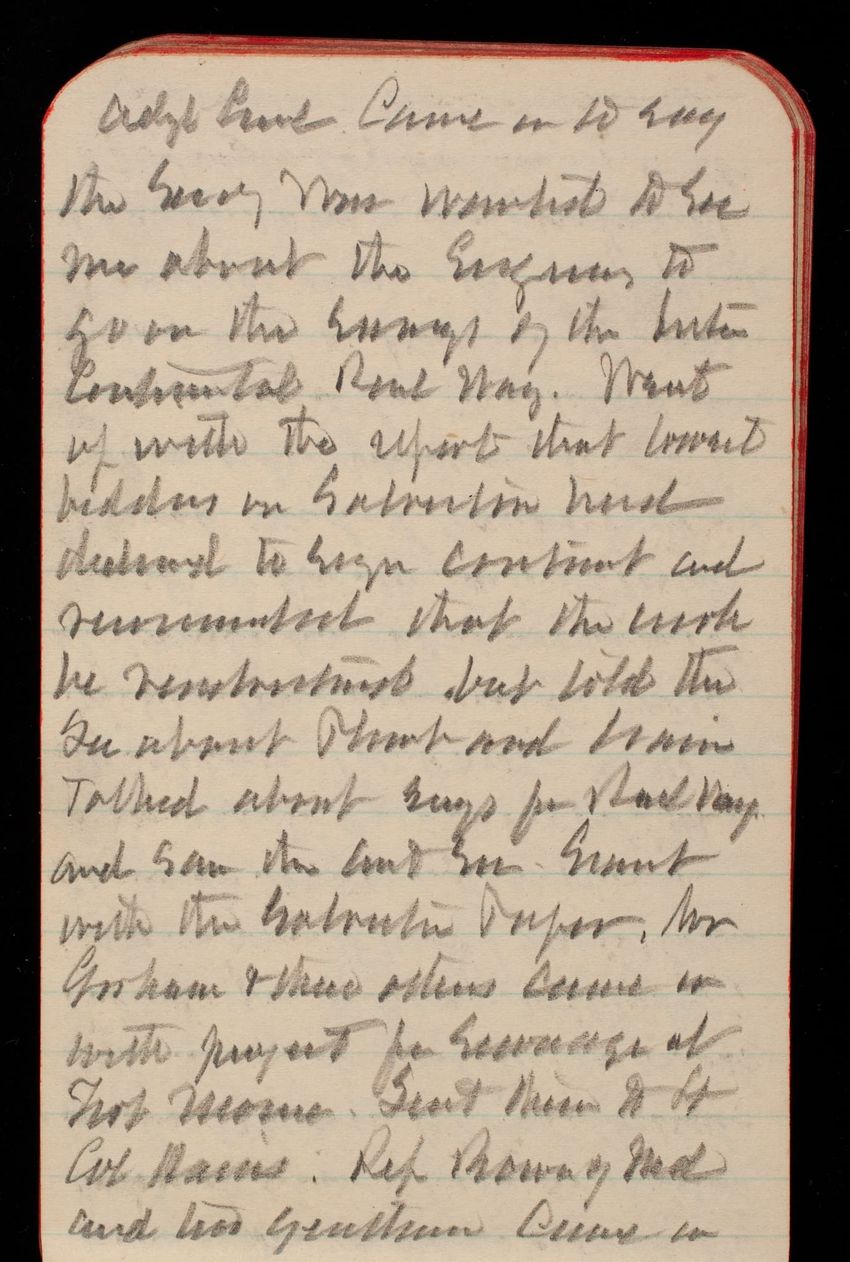 Adgt Genl Came in to say
the Secy War wanted to see
me about the Engineers to
go on the surveys of the Inter
Continental Rail Way. Went
up with the report that lowest
bidders on Galveston had
declined to sign contract and
recommended that the work
be readvertised but told the
Sec about and
Talked about Engs for Rail Way
and saw the Asst Sec Grant
with the Galveston Paper. Mr
Gorham & three others came in
with project for Sewerage at
Fort Monroe. Sent them to Lt
Col Hains. Rep Brown of Md
and two gentlemen came in